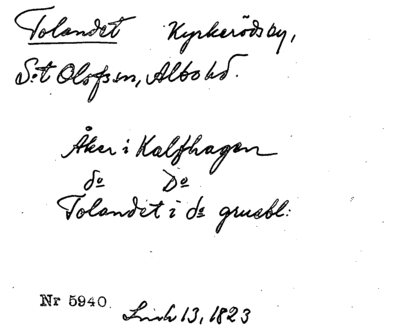 Tolandet Kyrkerödsby,
S:t Olofs sn, Albo hd.
Åker i Kalfhagen
do Do
Tolandet i do gruabl:
Nr 5940 Linh 13, 1823